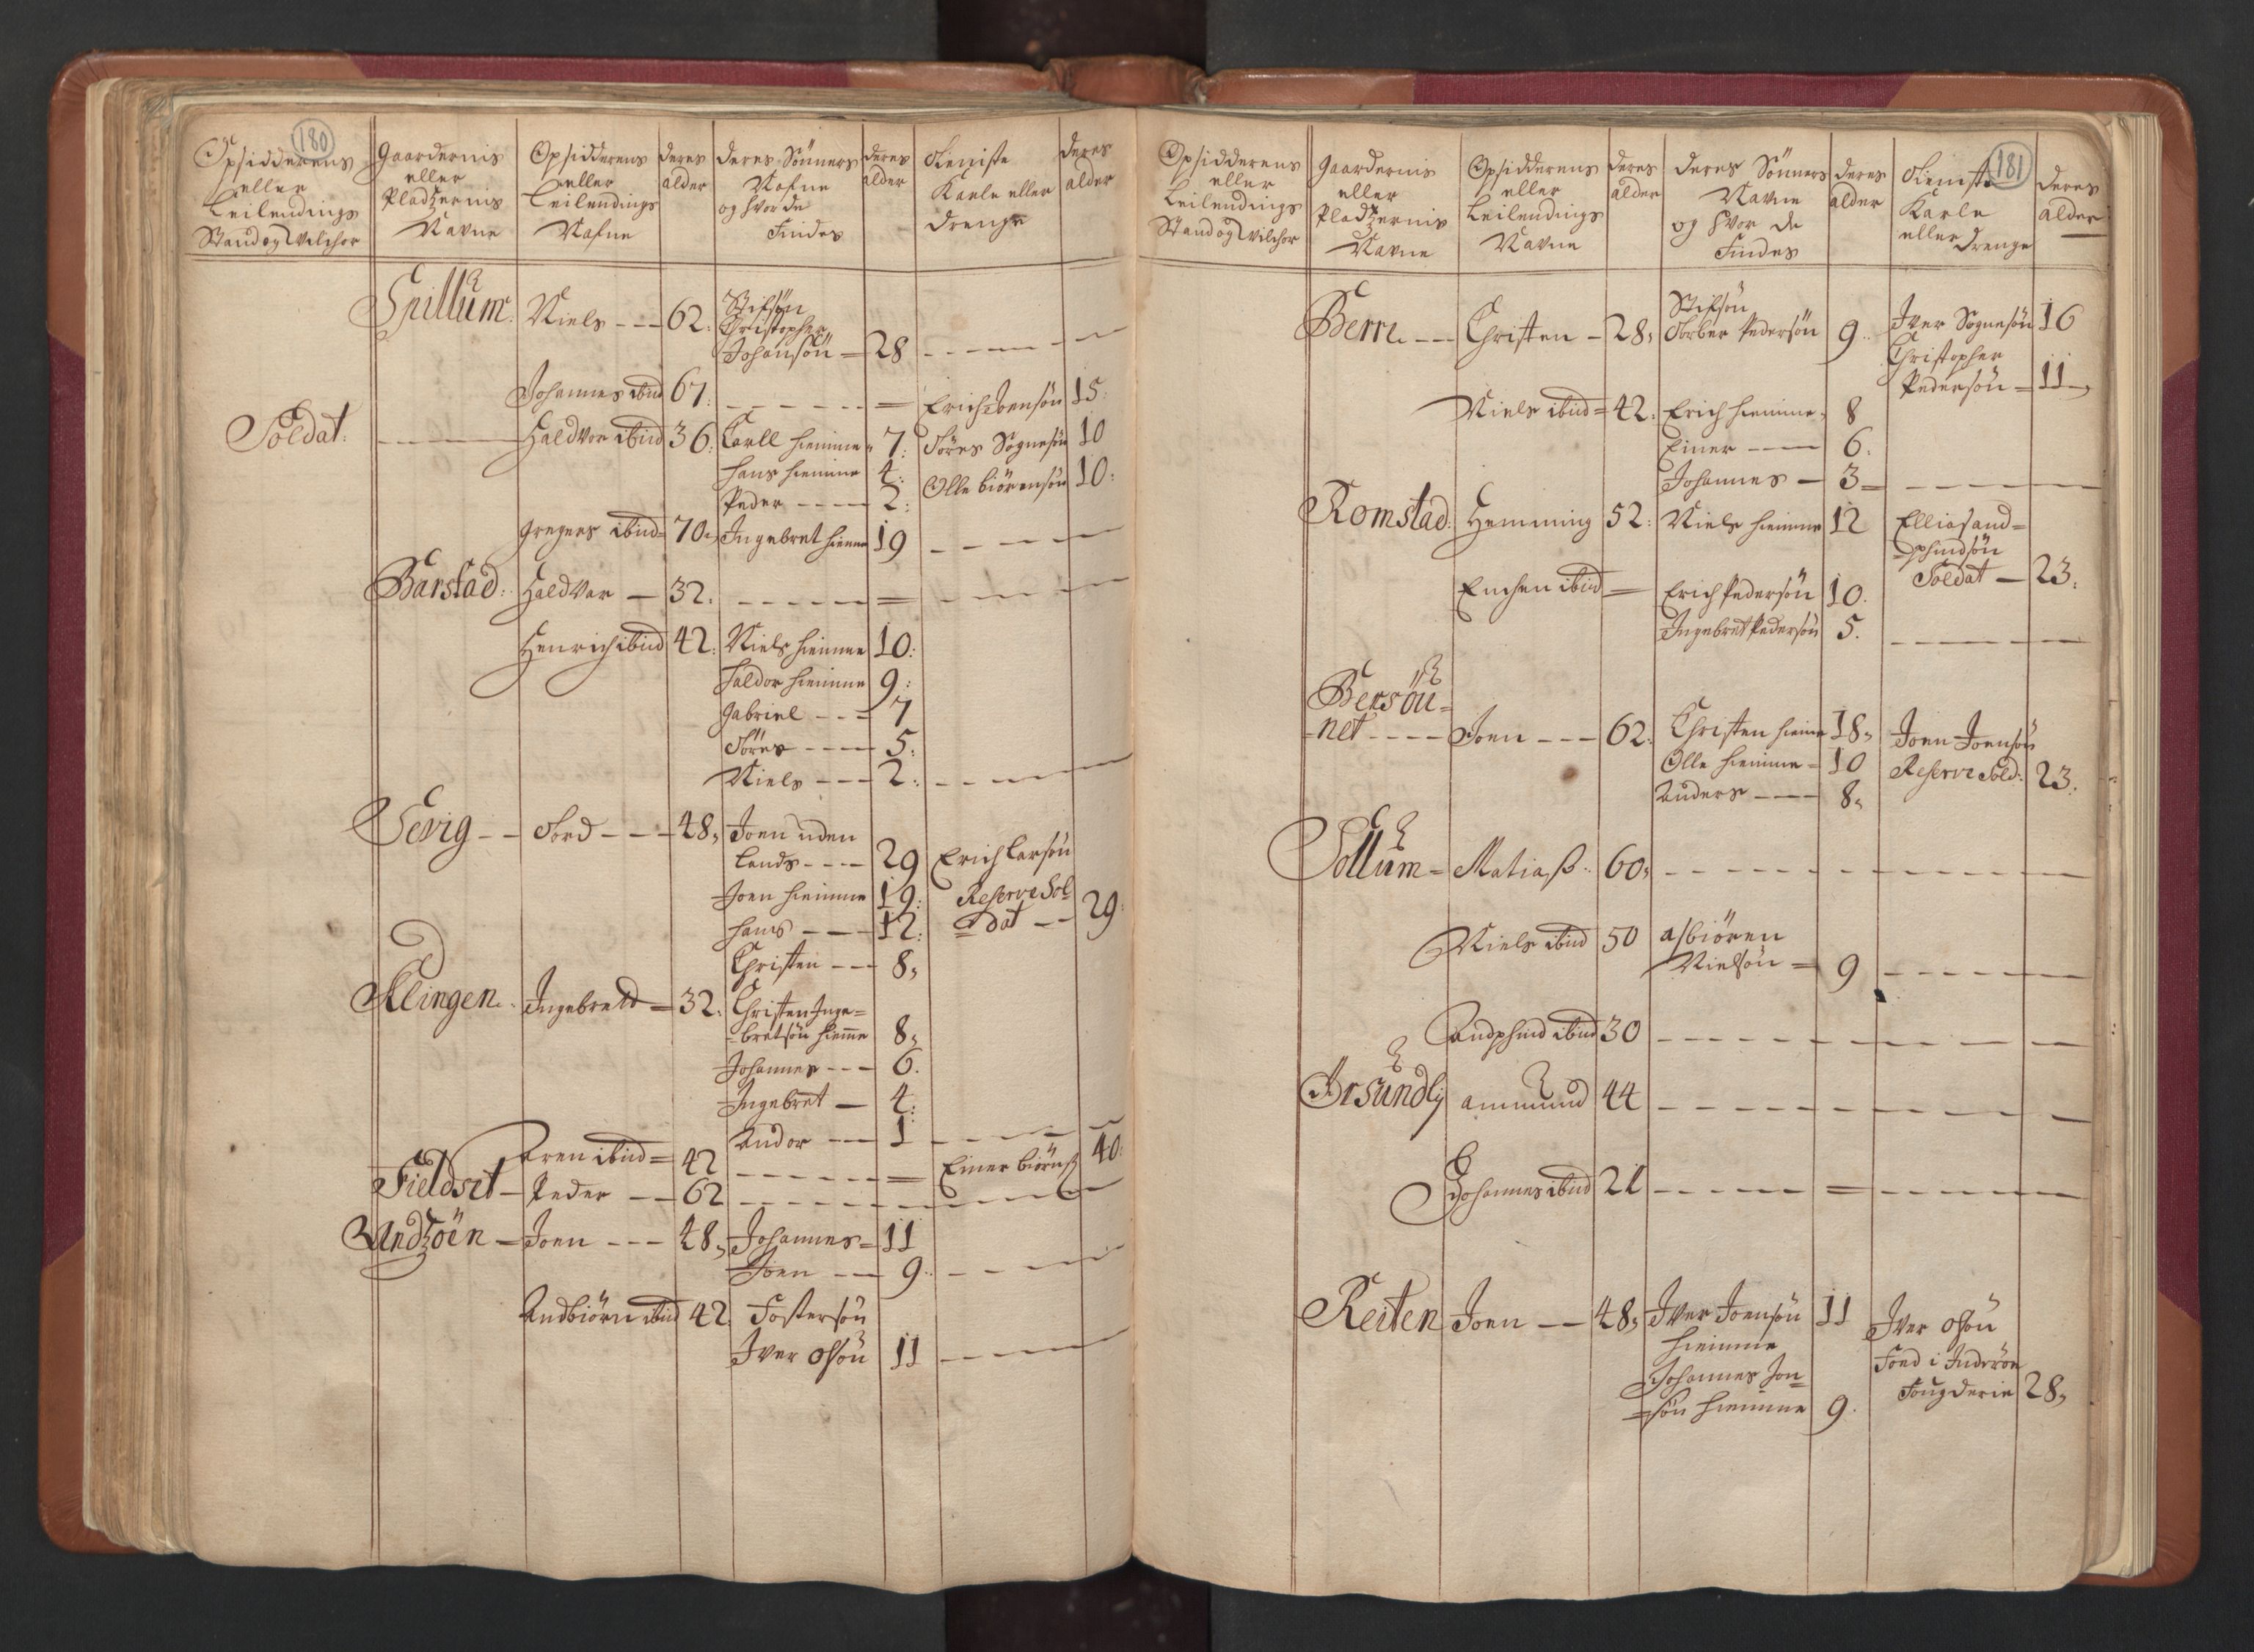 180
Opsidderens eller Leilendings Stand og Vilchor
Gaardernis eller Pladzernis Navne
Opsidderens eller Leilendings Nafne
deres alder
deres Sönners Nafne og hvor de Findes
deres alder
Tieniste Karle eller drenge
deres alder
Spillum: Niels --- 62: Stifsön
Christopher
Johansön = 28 -----
Johannes ibid 67: ------ = Erich Joensön 15:
Soldat: ---- Haldvor ibid 36: Carll hiemme 7: Töres Sognesön 10
Hans hiemme 4: Olle biörensön 10:
Peder ---- 2:
Gregers ibid= 70. Ingebret hieme 19 ----
Barstad: Haldvor — 32: ----- = ----
Henrich ibid 42: Niels hiemme 10:
Haldor hiemme 9:
Gabriel --- 7
Töres ---- 5:
Niels --- 2: ----
Sevig -- Tord --- 48, Joen uden
Lands ---- 29 Erich Larsön
Joen hiemme 19: Reserve Sol
Hans --- 12: = dat -- 29:
Christen --- 8,
Klingen.. Ingebrett = 32: Christen Inge=
=bretsön hieme 8,
Johannes --- 6.
Ingebret — 4:
Andor --- 1 -----
Aren ibid = 42 ------ = Einer biörns 40:
Fieldset — Peder -- 62 ------
Andzöen — Joen --- 48, Johannes = 11
Joen --- 9: ----
Andbiörn ibid 42 Fostersön
Iver Olsön 11 ----
181
Opsidderens eller Leilendings Stand og Vilchor
Gaardernis eller Pladzernis Navne
Opsidderens eller Leilendings Navne
deres alder
deres Sönners Navne og hvor de Findes
deres alder
Tieniste Karle eller drenge
deres alder
Berre --- Christen - 28, Stifsön
Torber Pedersön 9.. Iver Sognesön 16
Christopher
Pedersön = 11
Niels ibid = 42: Erich hiemme 8
Einer --- 6:
Johannes — 3 = ----
Romstad: Hemming 52: Niels hiemme 12 Ellias and=
=phindsön
Soldat — 23:
Enchen ibid = Erich Pedersön 10.
Ingebret Pedersön 5. ----
Bersön=
=net ---- Joen --- 62: Christen hieme 18, Joen Joensön
Olle hiemme = 10 Reserve Sold: 23:
Anders ---- 8,
Sollum = Matiaß.. 60, -----
Niels ibid 50 asbiören
Nielsön = 9 ----
Andphind ibid 30 -----
Örsundlj ammund 44 -----
Johannes ibid 21 ----- = ----
Reiten Joen -- 48, Iver Joensön 11 Iver Olsön
hiemme
Föed i Inderöe
Johannes Jon=
Fougderie 28,
=sön hiemme 9.